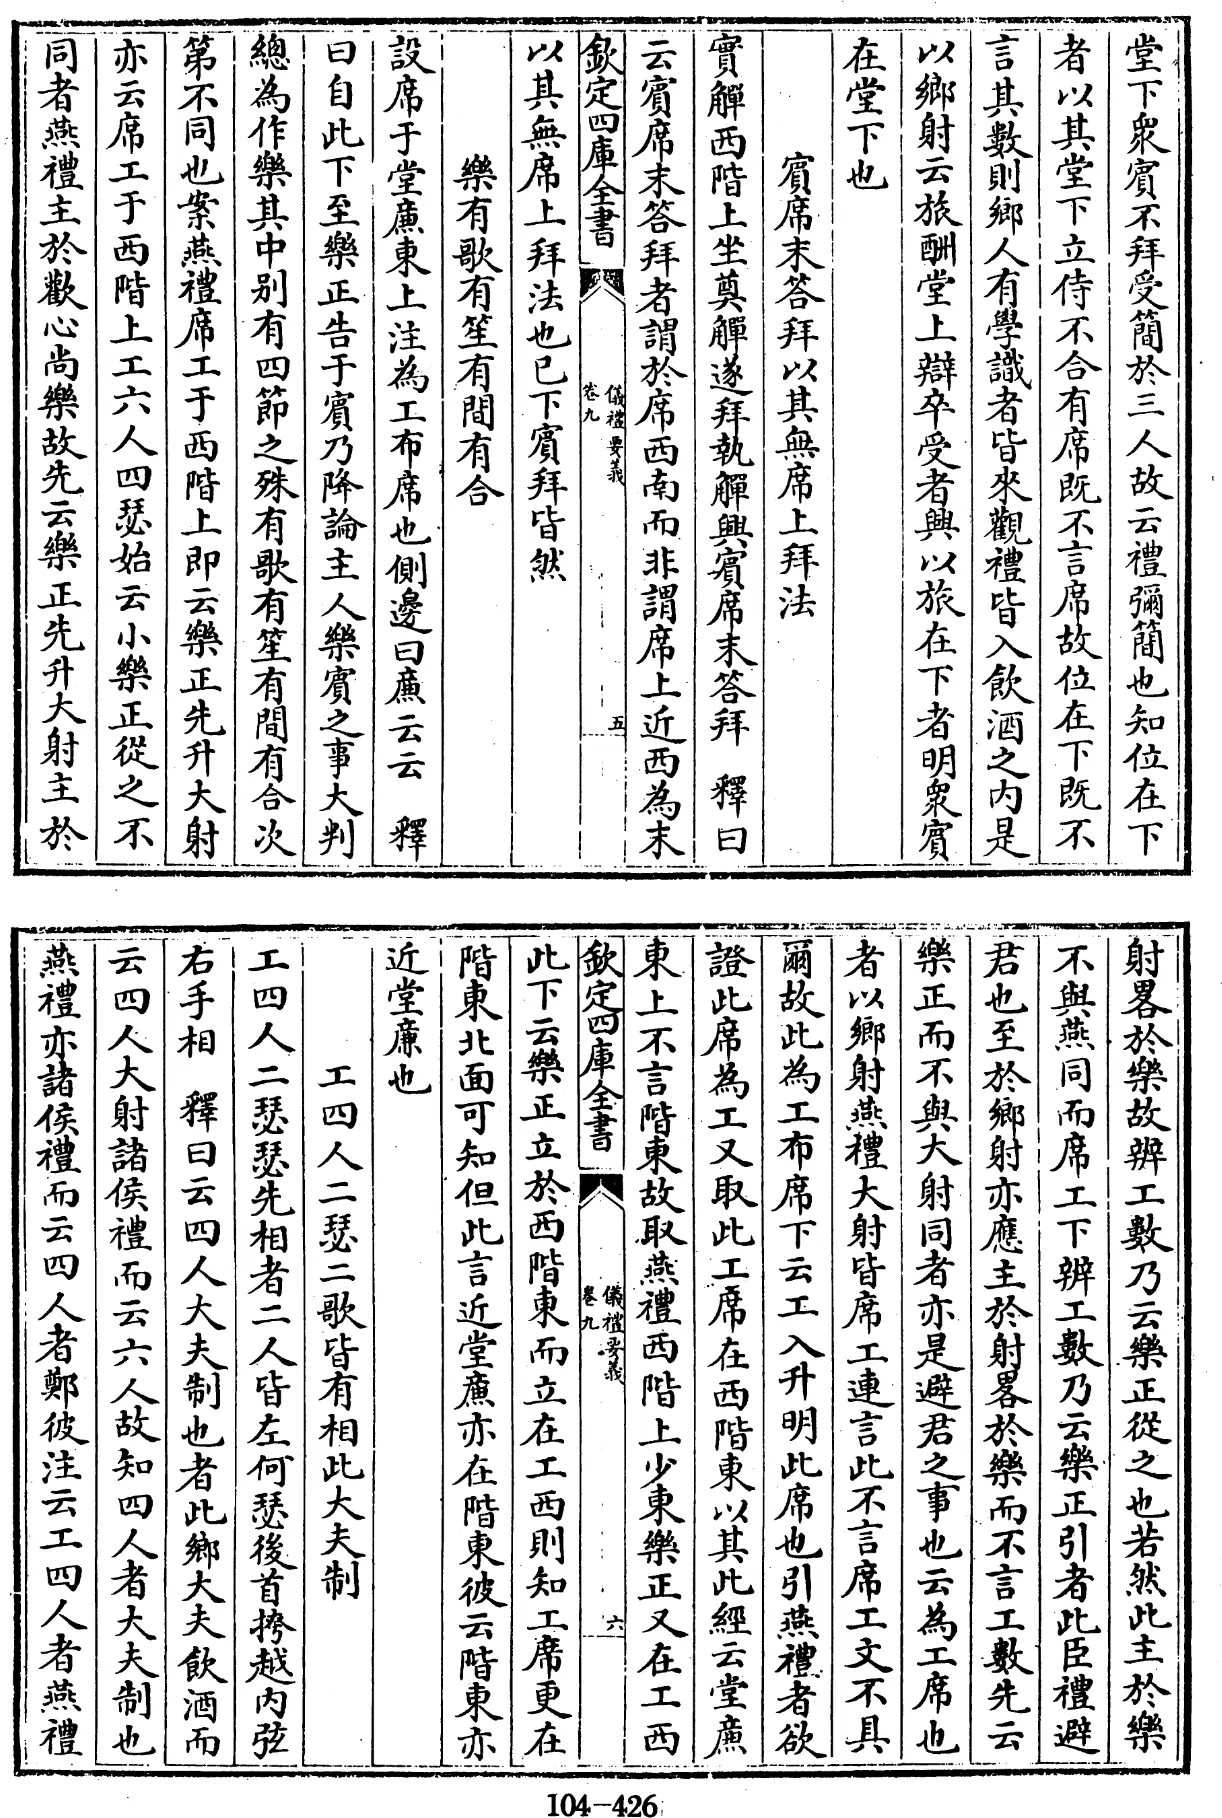 堂下衆賓不拜受簡於三人故云禮彌簡也知位在下
者以其堂下立侍不合有席既不言席故位在下既不
言其數則鄉人有學識者皆來觀禮皆入飲酒之内是
以鄉射云旅酬堂上辯卒受者興以旅在下者明衆賓
在堂下也
賓席末答拜以其無席上拜法
實觶西階上坐奠觶遂拜執觶興賓席末答拜　釋曰
云賓席末答拜者謂於席西南而非謂席上近西為末
欽定四庫全書
儀禮要義
卷九
五
以其無席上拜法也已下賓拜皆然
樂有歌有笙有間有合
設席于堂廉東上注為工布席也側邊曰廉云云　釋
曰自此下至樂正告于賓乃降論主人樂賓之事大判
總為作樂其中別有四節之殊有歌有笙有間有合次
第不同也案燕禮席工于西階上即云樂正先升大射
亦云席工于西階上工六人四瑟始云小樂正從之不
同者燕禮主於歡心尚樂故先云樂正先升大射主於
射畧於樂故辨工數乃云樂正從之也若然此主於樂
不與燕同而席工下辨工數乃云樂正引者此臣禮避
君也至於鄉射亦應主於射畧於樂而不言工數先云
樂正而不與大射同者亦是避君之事也云為工席也
者以鄉射燕禮大射皆席工連言此不言席工文不具
爾故此為工布席下云工入升明此席也引燕禮者欲
證此席為工又取此工席在西階東以其此經云堂廉
東上不言階東故取燕禮西階上少東樂正又在工西
欽定四庫全書
儀禮要義
卷九
六
此下云樂正立於西階東而立在工西則知工席更在
階東北面可知但此言近堂廉亦在階東彼云階東亦
近堂廉也
工四人二瑟二歌皆有相此大夫制
工四人二瑟瑟先相者二人皆左何瑟後首挎越内弦
右手相　釋曰云四人大夫制也者此鄉大夫飲酒而
云四人大射諸侯禮而云六人故知四人者大夫制也
燕禮亦諸侯禮而云四人者鄭彼注云工四人者燕禮
104-426